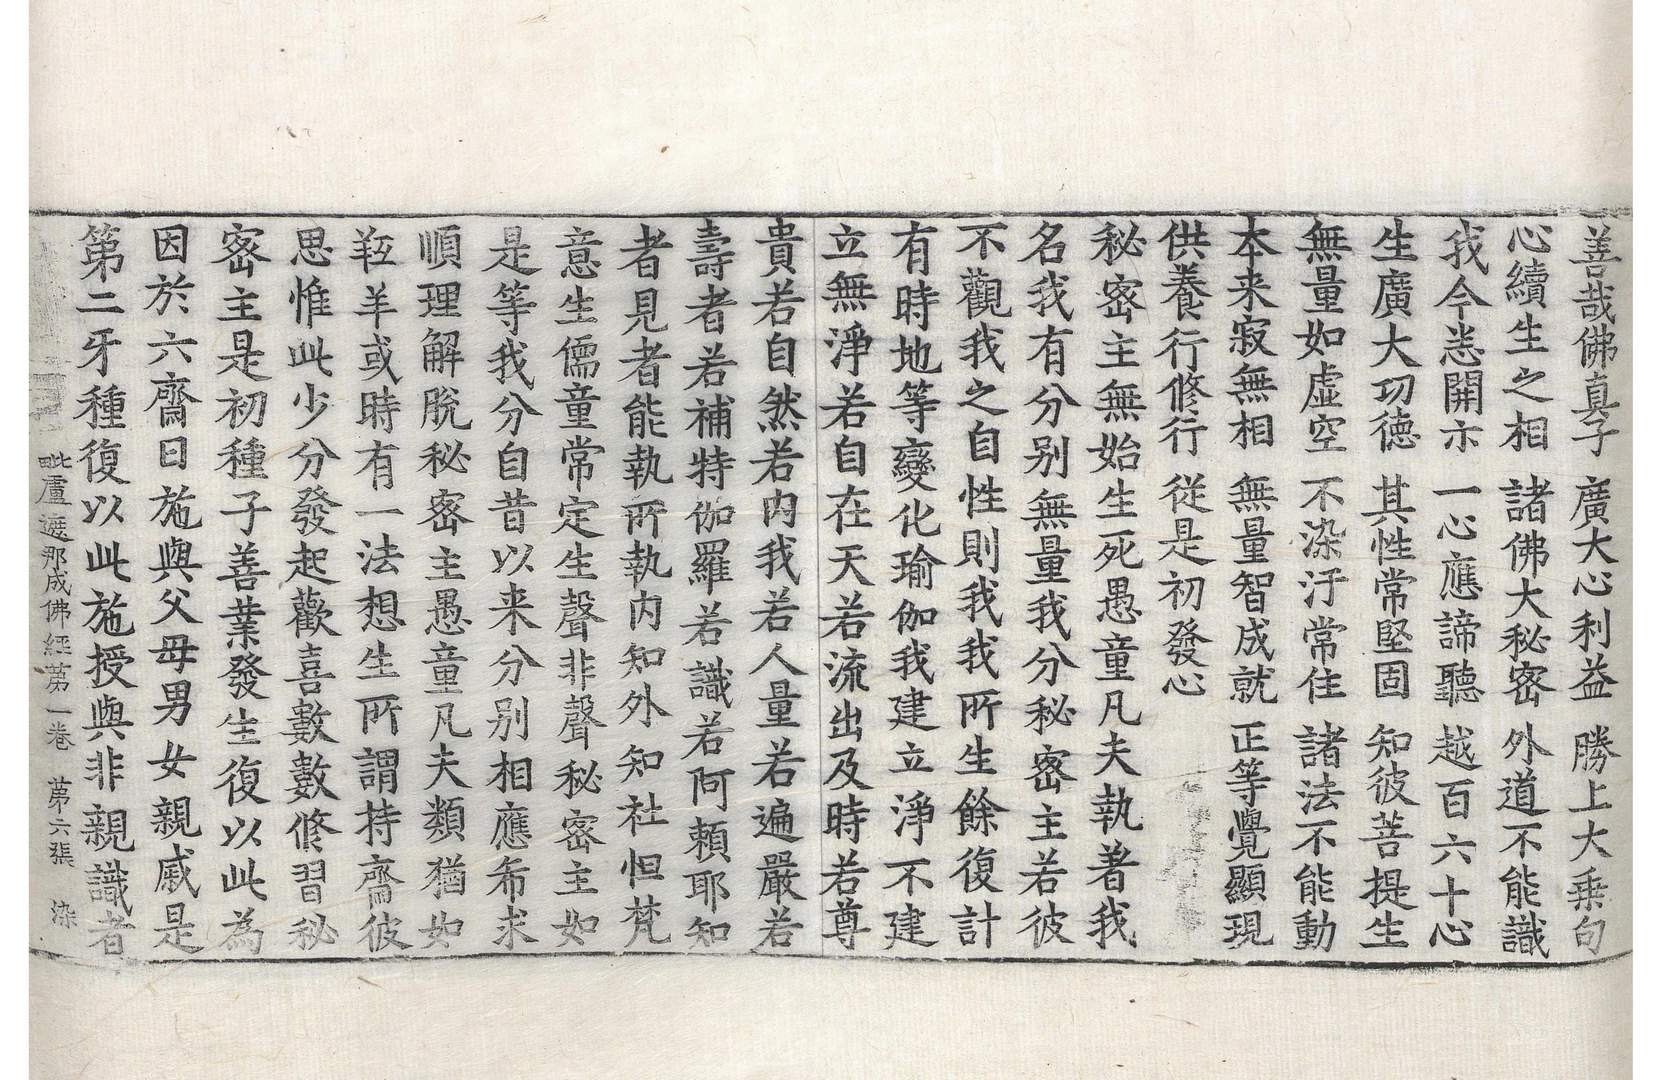 善哉佛真子 廣大心利益 勝上大乗句
心續生之相 諸佛大秘密 外道不能識
我今悉開示 一心應諦聽 越百六十心
生廣大功德 其性常堅固 知彼菩提生
無量如虛空 不染汙常住 諸法不能動
本来寂無相 無量智成就 正等覺顯現
供養行修行 從是初發心
秘密主無始生死愚童凡夫執著我
名我有分别無量我分秘密主若彼
不觀我之自性則我我所生餘復計
有時地等變化瑜伽我建立淨不建
立無淨若自在天若流出及時若尊
貴若自然若内我若人量若遍嚴若
壽者若補特伽羅若識若阿頼耶知
者見者能執所執内知外知社怛梵
意生儒童常定生聲非聲秘密主如
是等我分自昔以来分别相應希求
順理解脫秘密主愚童凡夫類猶如
羝羊或時有一法想生所謂持齋彼
思惟此少分發起歡喜數數修習秘
密主是初種子善業發生復以此為
因於六齋日施與父母男女親戚是
第二牙種復以此施授與非親識者
毗盧遮那成佛經第一卷 第六張 染